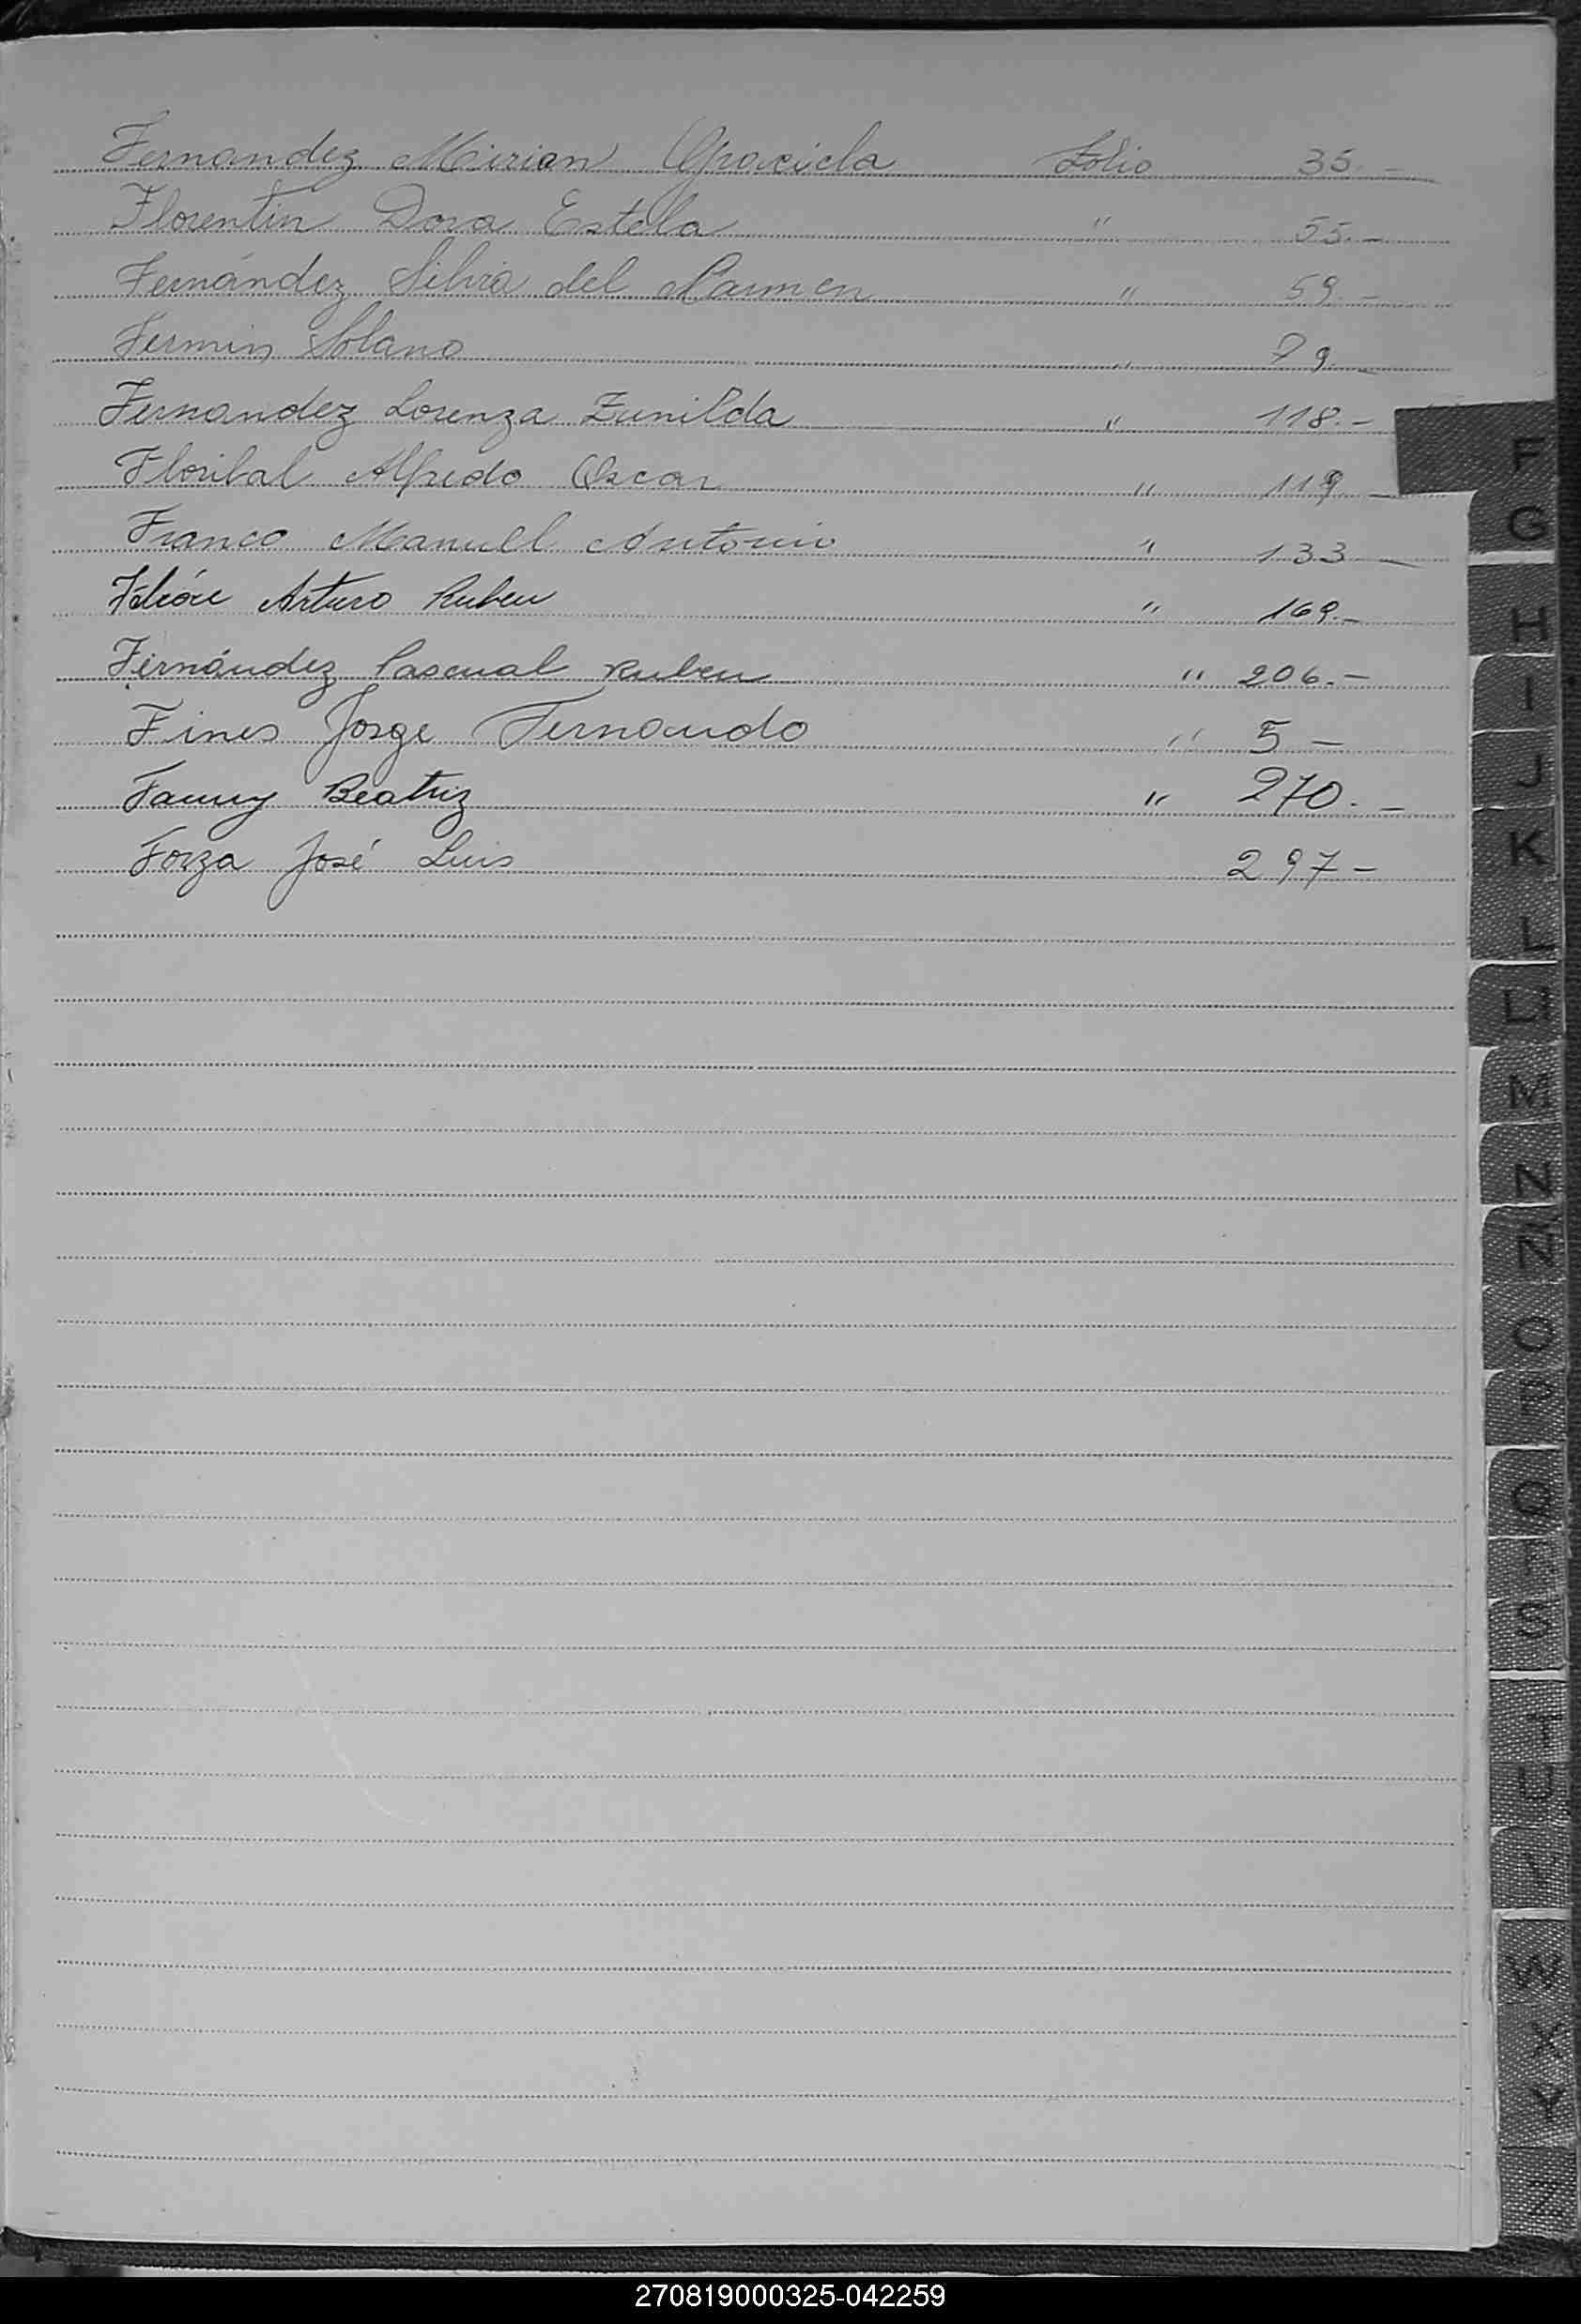 Fernandez Mirian Graciela Folio 35.-
Florentin Dora Estela " 55.-
Fernández Silvia del Carmen " 59.-
Fermin Solano " 79.-
Fernandez Lorenza Zunilda " 118.-
Floribal Alfredo Oscar " 119.-
Franco Manuel Antonio " 133-
Arturo Ruben " 169.-
Fernández Pascual Ruben " 206.-
Fines Jorge Fernando " 5-
Fanny Beatriz " 270.-
Forza José Luis 297-
F
G
H
I
J
K
L
LL
M
N
Ñ
O
P
Q
R
S
T
U
V
W
X
Y
Z
270819000325-042259